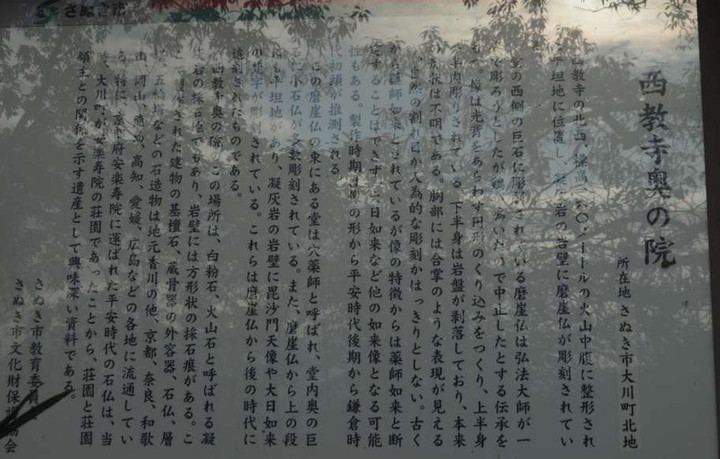 さぬき市
西教寺奥の院
所在地 さぬき市大川町北地
西教寺の北西、標高二〇〇メートルの火山中腹に整形され
平坦地に位置し、凝灰岩の岩壁に磨崖仏が彫刻されてい
堂の西側の巨石に彫刻されている磨崖仏は弘法大師が一
で彫ろうとしたが鶏が鳴いたので中止したとする伝承を
像は光背をあらわす円形のくり込みをつくり、上半身
半肉彫りされている。下半身は岩盤が剥落しており、本来
状は不明である。胸部には合掌のような表現が見える
自然の割れ目か人為的な彫刻かはっきりとしない。古く
から薬師如来とされているが像の特徴からは薬師如来と断
定することはできず、大日如来など他の如来像となる可能
性もある。製作時期は の形から平安時代後期から鎌倉時
代初頭が推測される。
この磨崖仏の東にある堂は穴薬師と呼ばれ、堂内奥の巨
石に小石仏が多数彫刻されている。また、磨崖仏から上の段
にも平坦地があり、凝灰岩の岩壁に毘沙門天像や大日如来
の梵字が彫刻されている。これらは磨崖仏から後の時代に
追刻されたものである。
西教寺奥の院のこの場所は、白粉石、火山石と呼ばれる凝
灰岩の採石地でもあり、岩壁には方形状の採石痕がある。こ
こで された建物の基壇石、蔵骨器の外容器、石仏、層
塔、五輪塔などの石造物は地元香川の他、京都、奈良、和歌
山、岡山、徳島、高知、愛媛、広島などの各地に流通してい
る。特に、京都府安楽寿院に運ばれた平安時代の石仏は、当
時、大川町が安楽寿院の荘園であったことから、荘園と荘園
領主との関係を示す遺産として興味深い資料である。
さぬき市教育委員会
さぬき市文化財保護協会